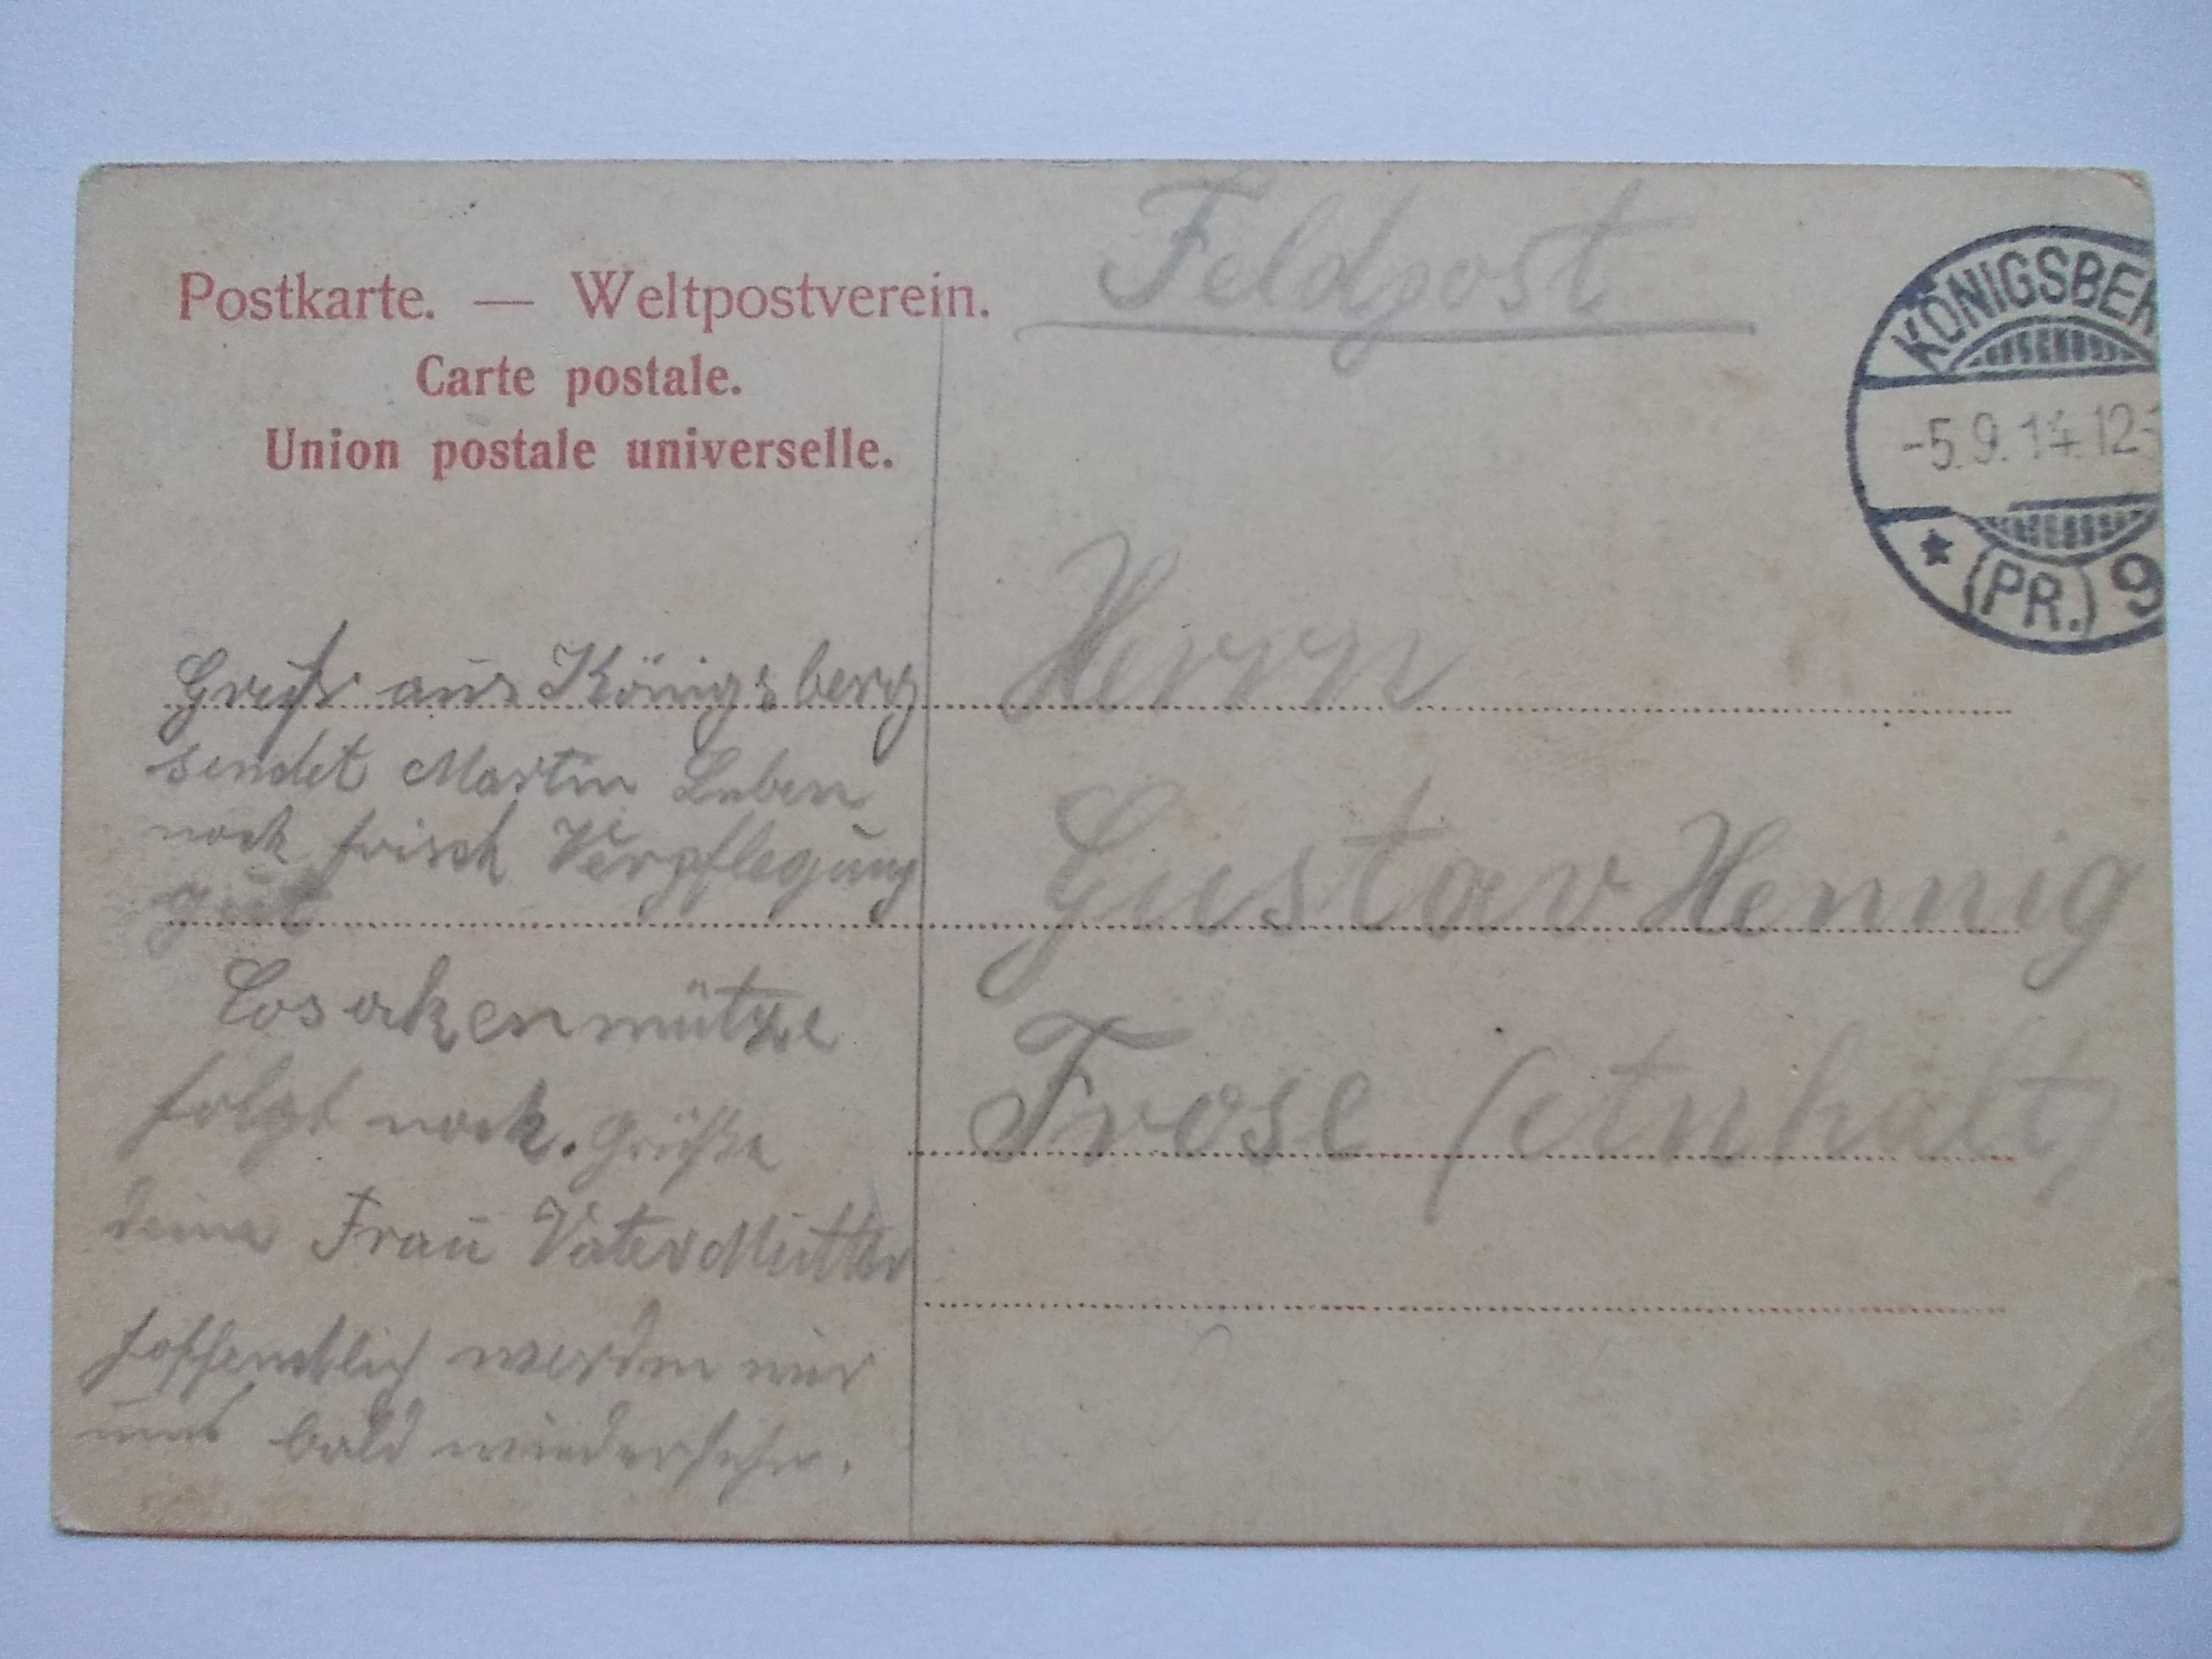 Postkarte. — Weltpostverein.
Carte postale.
Union postale universelle.
Feldpost
KÖNIGSBER
-5.9.14.12-1
* (PR.) 9
Gruß aus Königsberg
sendet Martin Leben
noch frisch Verpflegung
gut
Cosakenmütze
folgt noch. Grüße
deine Frau Vater Mutter
hoffendlich werden wir
uns bald wiedersehn.
Herrn
Gustav Hennig
Frose (Anhalt)